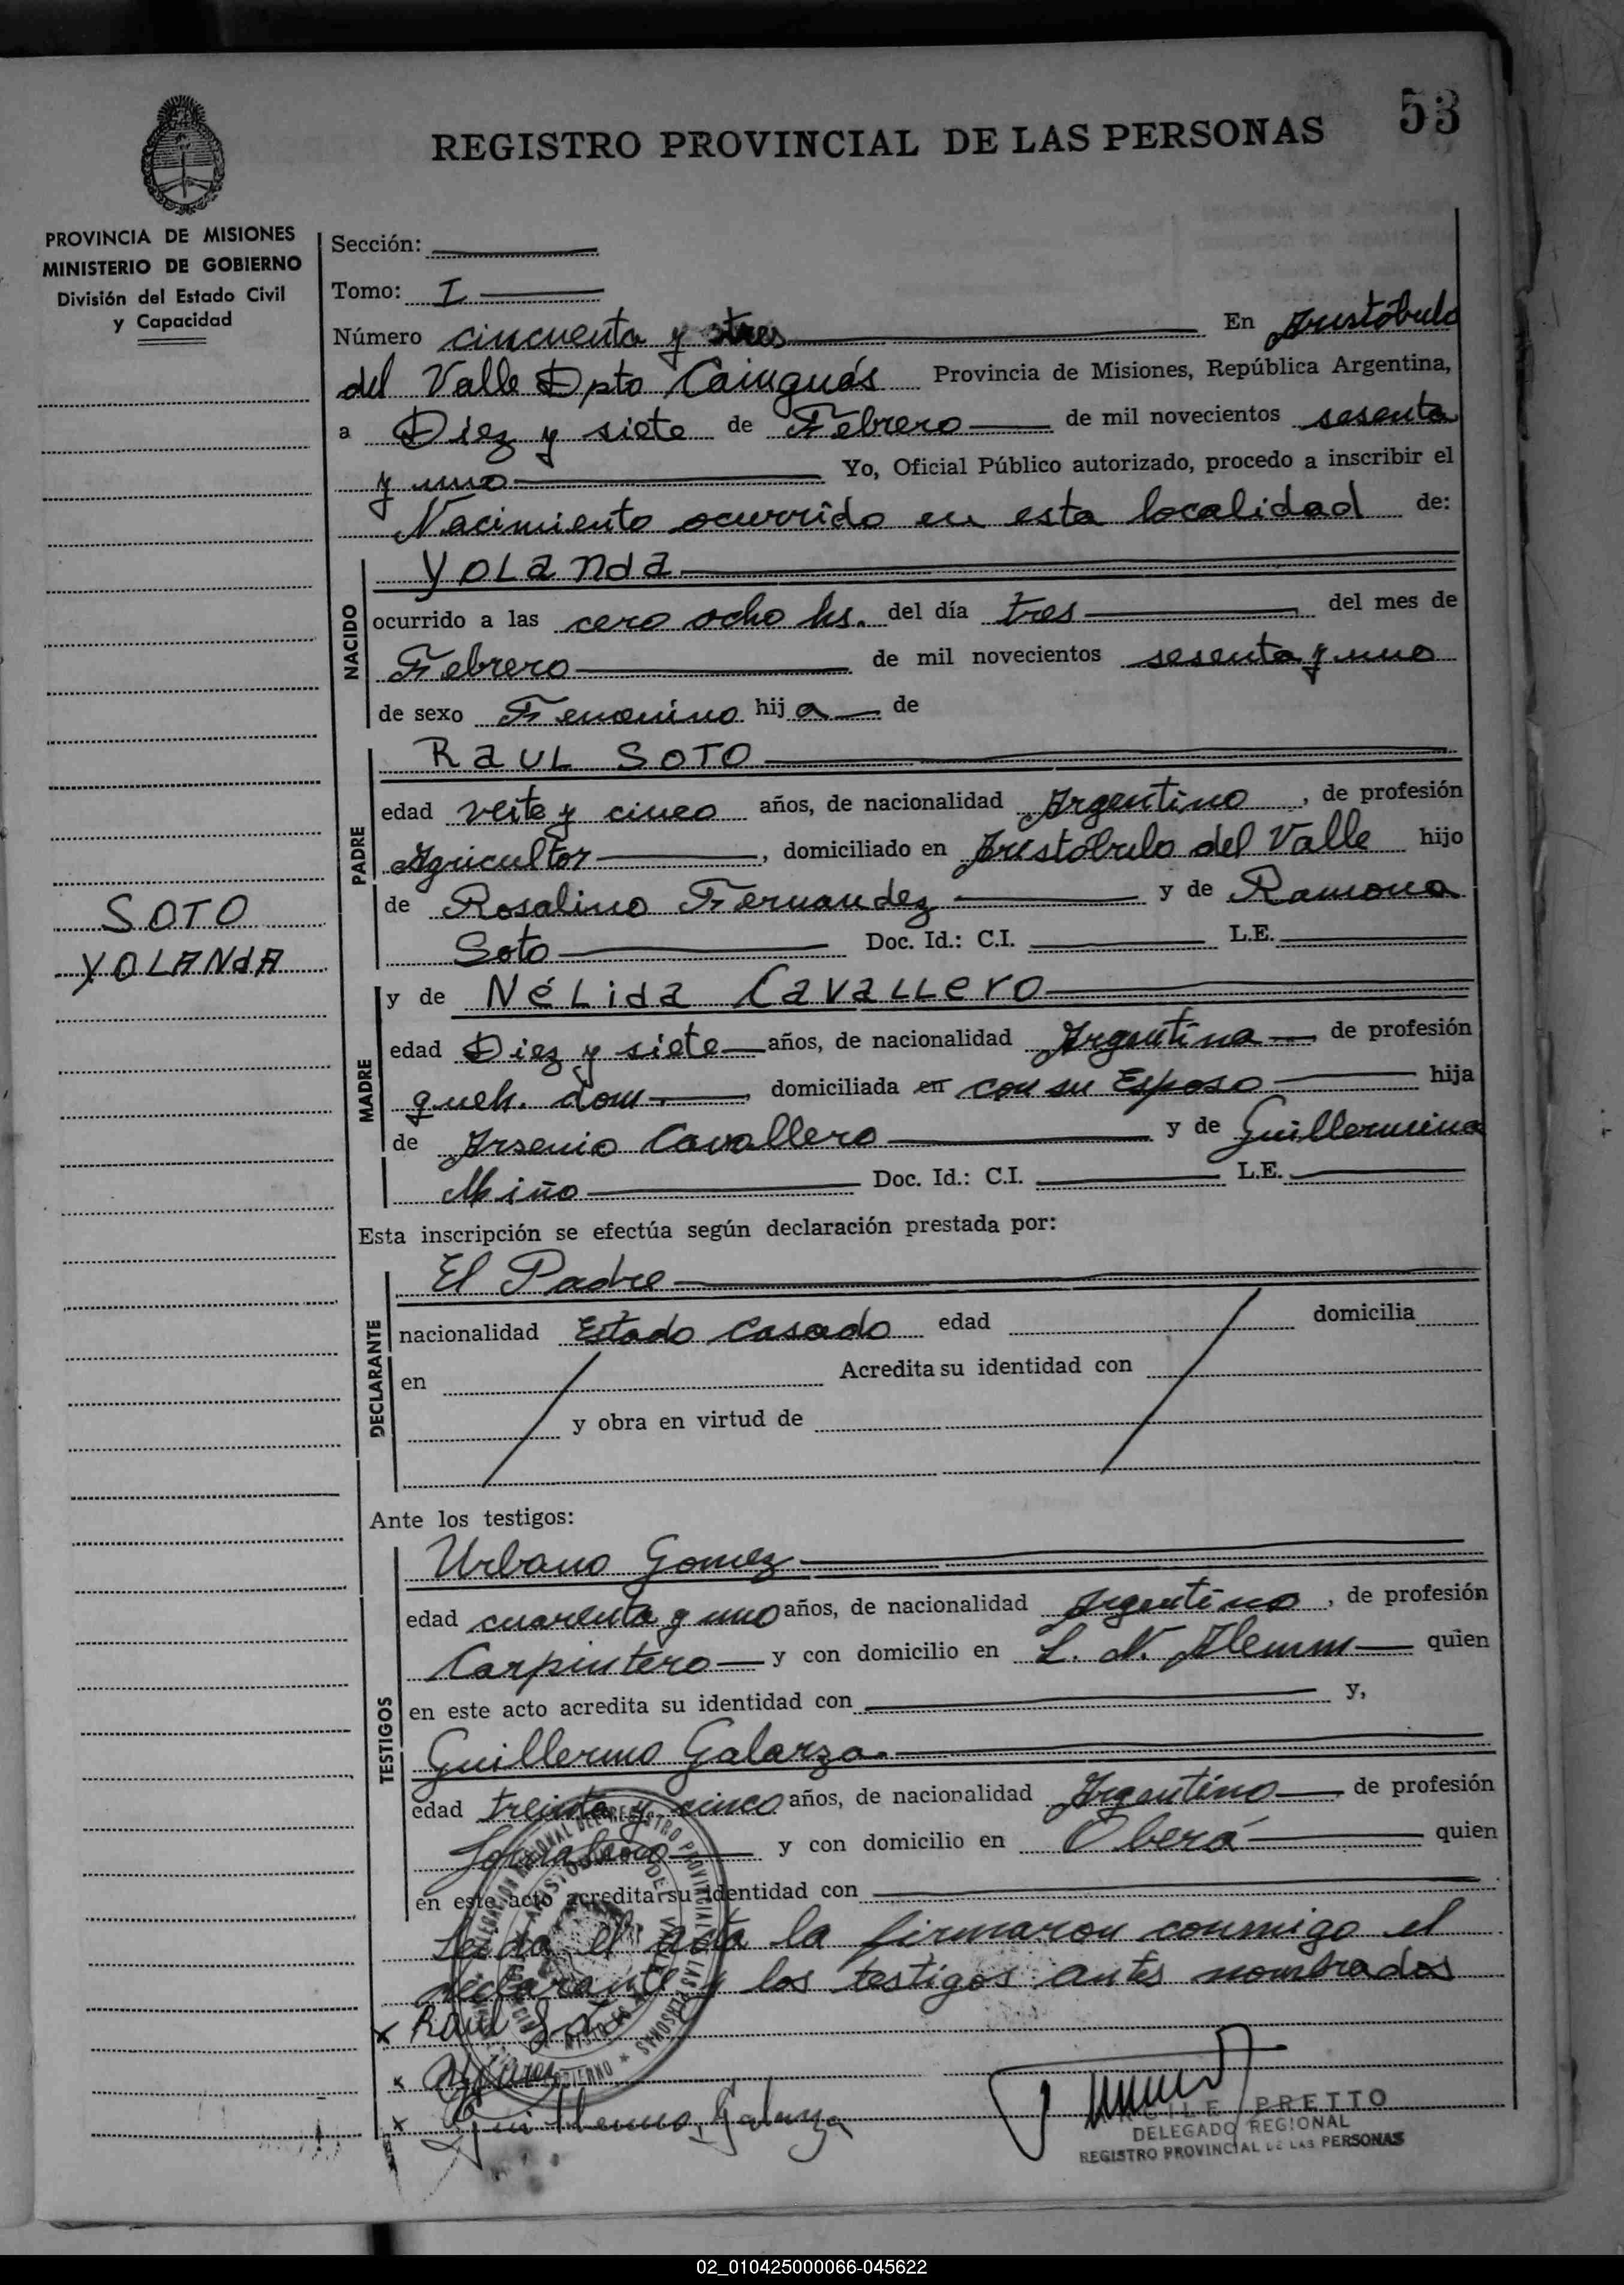 53
REGISTRO PROVINCIAL DE LAS PERSONAS
PROVINCIA DE MISIONES
MINISTERIO DE GOBIERNO
División del Estado Civil
y Capacidad
Sección:
Tomo: I
Número cincuenta y tres En Aristóbulo
del Valle Dpto Cainguás Provincia de Misiones, República Argentina,
a Diez y siete de Febrero de mil novecientos sesenta
y uno Yo, Oficial Público autorizado, procedo a inscribir el
Nacimiento ocurrido en esta localidad de:
NACIDO
YOLanda
ocurrido a las cero ocho hs. del día tres del mes de
Febrero de mil novecientos sesenta y uno
de sexo Femenino hij a de
PADRE
RaUL SOTO
edad veite y cinco años, de nacionalidad Argentino, de profesión
Agricultor, domiciliado en Aristóbulo del Valle hijo
de Rosalino Fernandez y de Ramona
Soto Doc. Id.: C.I. L.E.
SOTO
YOLANdA
MADRE
y de NéLida CavaLLero
edad Diez y siete años, de nacionalidad Argentina de profesión
queh. dom. domiciliada en con su Esposo hija
de Arsenio Cavallero y de Guillermina
Miño Doc. Id.: C.I. L.E.
Esta inscripción se efectúa según declaración prestada por:
DECLARANTE
El Padre
nacionalidad Estado Casado edad domicilia
en Acredita su identidad con
y obra en virtud de
Ante los testigos:
TESTIGOS
Urbano Gomez
edad cuarenta y uno años, de nacionalidad Argentino, de profesión
Carpintero y con domicilio en L. N. Alemm quien
en este acto acredita su identidad con y,
Guillermo Galarza.
edad treinta y cinco años, de nacionalidad Argentino de profesión
y con domicilio en Oberá quien
en este acto acredita su identidad con
Leida el acta la firmaron conmigo el
declarante y los testigos antes nombrados
x Raul Soto
x
x Guillermo Galarza
PRETTO
DELEGADO REGIONAL
REGISTRO PROVINCIAL DE LAS PERSONAS
02_010425000066-045622